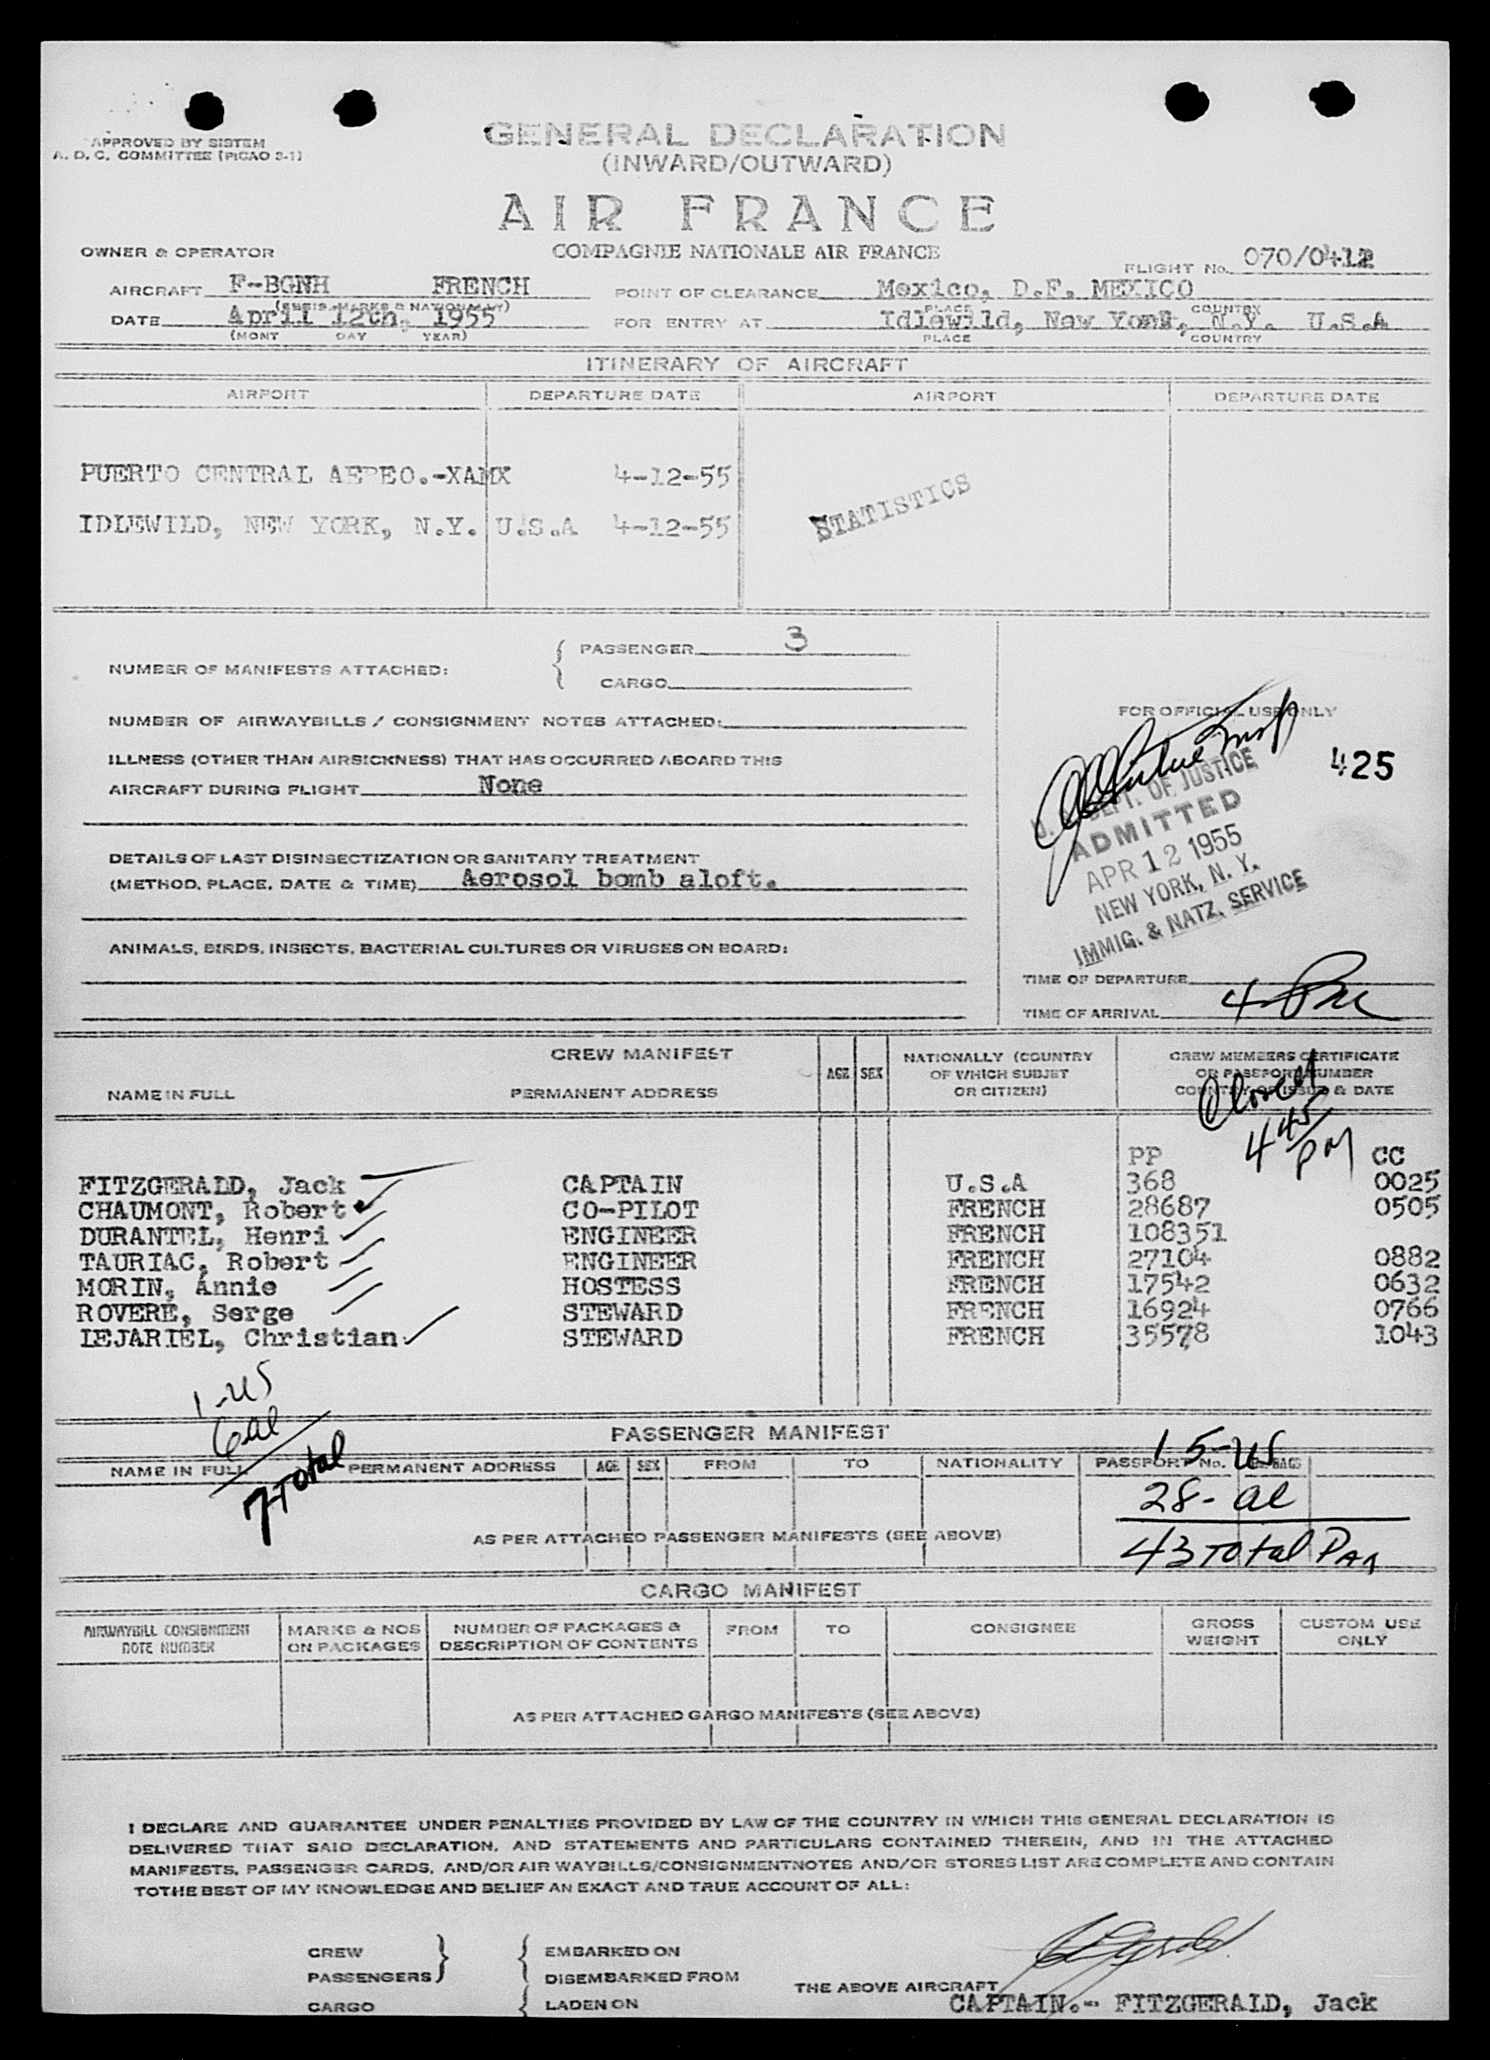 APPROVED BY SISTEM
A. D. C. COMMITTEE (PICAO 3-1)
GENERAL DECLARATION
(INWARD/OUTWARD)
AIR FRANCE
OWNER & OPERATOR
COMPAGNIE NATIONALE AIR FRANCE
FLIGHT No. 070/0412
AIRCRAFT F-BGNH FRENCH POINT OF CLEARANCE Mexico, D.F. MEXICO
PLACE COUNTRY
DATE April 12th, 1955 FOR ENTRY AT Idlewild, New York, N.Y. U.S.A
(MONT DAY YEAR) PLACE COUNTRY
ITINERARY OF AIRCRAFT
AIRPORT DEPARTURE DATE AIRPORT DEPARTURE DATE
PUERTO CENTRAL AEREO.-XAMX 4-12-55
STATISTICS
IDLEWILD, NEW YORK, N.Y. U.S.A 4-12-55
NUMBER OF MANIFESTS ATTACHED:
PASSENGER 3
CARGO
NUMBER OF AIRWAYBILLS / CONSIGNMENT NOTES ATTACHED:
FOR OFFICIAL USE ONLY
425
ILLNESS (OTHER THAN AIRSICKNESS) THAT HAS OCCURRED ABOARD THIS
AIRCRAFT DURING FLIGHT None
U. S. DEPT. OF JUSTICE
ADMITTED
APR 12 1955
NEW YORK, N. Y.
IMMIG. & NATZ. SERVICE
DETAILS OF LAST DISINSECTIZATION OR SANITARY TREATMENT
(METHOD, PLACE, DATE & TIME) Aerosol bomb aloft.
ANIMALS, BIRDS, INSECTS, BACTERIAL CULTURES OR VIRUSES ON BOARD:
TIME OF DEPARTURE
TIME OF ARRIVAL 4 PM
CREW MANIFEST
NAME IN FULL PERMANENT ADDRESS AGE SEX
NATIONALLY (COUNTRY
OF WHICH SUBJET
OR CITIZEN)
CREW MEMBERS CERTIFICATE
OR PASSPORT NUMBER
COUNTRY OF ISSUE & DATE
Closed
4 45/PM
PP CC
FITZGERALD, Jack CAPTAIN U.S.A 368 0025
CHAUMONT, Robert CO-PILOT FRENCH 28687 0505
DURANTEL, Henri ENGINEER FRENCH 108351
TAURIAC, Robert ENGINEER FRENCH 27104 0882
MORIN, Annie HOSTESS FRENCH 17542 0632
ROVERE, Serge STEWARD FRENCH 16924 0766
LEJARIEL, Christian STEWARD FRENCH 35578 1043
1-US
6 al
7 Total
PASSENGER MANIFEST
NAME IN FULL PERMANENT ADDRESS AGE SEX FROM TO NATIONALITY PASSPORT No.
15-US
28-al
43 Total
AS PER ATTACHED PASSENGER MANIFESTS (SEE ABOVE)
CARGO MANIFEST
AIRWAYBILL CONSIGNMENT
NOTE NUMBER
MARKS & NOS
ON PACKAGES
NUMBER OF PACKAGES &
DESCRIPTION OF CONTENTS
FROM TO CONSIGNEE
GROSS
WEIGHT
CUSTOM USE
ONLY
AS PER ATTACHED GARGO MANIFESTS (SEE ABOVE)
I DECLARE AND GUARANTEE UNDER PENALTIES PROVIDED BY LAW OF THE COUNTRY IN WHICH THIS GENERAL DECLARATION IS
DELIVERED THAT SAID DECLARATION, AND STATEMENTS AND PARTICULARS CONTAINED THEREIN, AND IN THE ATTACHED
MANIFESTS, PASSENGER CARDS, AND/OR AIR WAYBILLS/CONSIGNMENTNOTES AND/OR STORES LIST ARE COMPLETE AND CONTAIN
TOTHE BEST OF MY KNOWLEDGE AND BELIEF AN EXACT AND TRUE ACCOUNT OF ALL:
CREW EMBARKED ON
PASSENGERS DISEMBARKED FROM
THE ABOVE AIRCRAFT
CARGO LADEN ON
CAPTAIN.- FITZGERALD, Jack